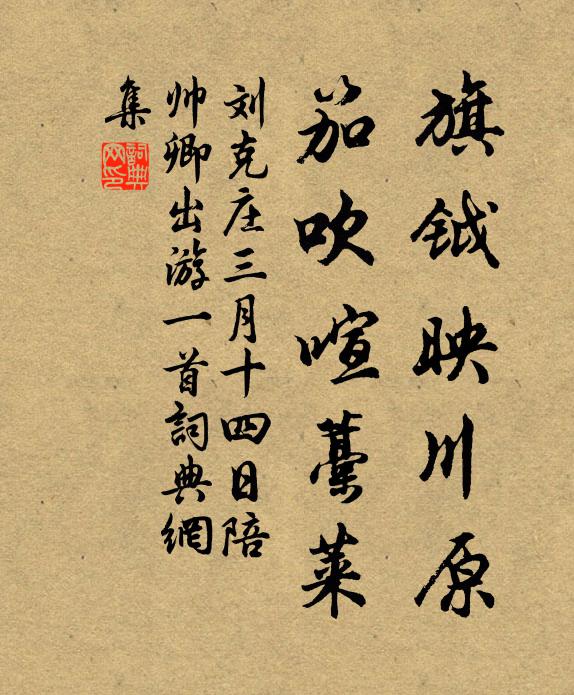 旗鉞映川原
笳吹喧藁萊
刘克庄三月十四日陪
帅卿出游一首詞典網
集
詞典网印